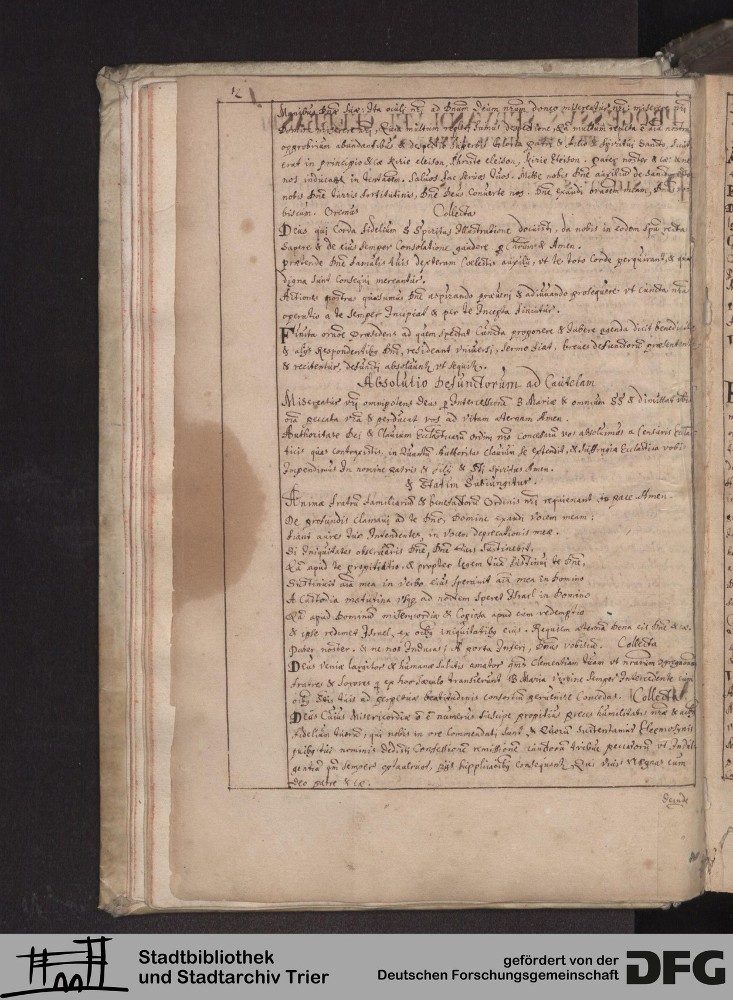 Manibus Dnæ suæ: Ita oculi nri ad Dnum Deum nrum, donec misereatur nri: miserere nri
Domine miserere nri, Quia multum repleti sumus despectione, Qa multum repleta e aia nostra
opprobrium abundantibus & despectio superbis Gloria Patri & Filio & Spiritui Sancto, sicut
erat in principio &cæ Kirie eleison, Christe eleison, Kirie Eleison. Pater noster & cæ: & ne
nos inducas in tentatem. Saluos fac seruos tuos. Mitte nobis Dne auxilium de sancto
nobis Dne turris fortitudinis, Dne Deus Conuerte nos. Dne exaudi oraoem meam, Dnus vo
biscum. Oremus Collecta
Deus qui Corda fidelium S Spiritus Illustratione docuisti, da nobis in eodem Spu recta
sapere & de eius semper Consolatione gaudere p Christum & Amen.
Prætende Dne famulis tuis dexteram Coelestis auxilij, vt te toto Corde perquirant, & quæ
digne
Actiones nostras quæsumus Dne aspirando præueni & adiuuando prosequere vt Cuncta nra
operatio a te semper Incipiat & per te Incepta finiatur.
Finita oraoe Præsidens ad quem spectat Cuncta proponere & Iubere agenda dicit benedicite
& alijs Respondentibus Dnus, resideant vniuersi, sermo fiat, breues defunctorum præsententur
& recitentur, defuncti absoluantur vt sequitur.
Absolutio Defunctorum ad Cautelam
Misereatur vri omnipotens Deus p Intercessionem B Mariæ & omnium SS & dimissat vobis
oia peccata vra & perducat vos ad vitam æternam Amen.
Authoritate Dei &
ticis quas contraxistis, in Quantum Authoritas Clauium se extendit, & suffragia Ecclastica vobis
Impendimus In nomine Patris & Filij & Sti Spiritus Amen.
& Statim Subiungitur.
Animæ fratrum familiarium & benefactorum Ordinis nri requiescant in pace Amen.
De profundis Clamaui ad te Dne, Domine Exaudi vocem meam:
Fiant aures tuæ Intendentes, in vocem deprecationis meæ.
Si Iniquitates obseruaueris Dne, Dne quis sustinebit.
Qa apud te propitiatio & propter legem tuam sustinui te Dne,
Sustinuit aia mea in verbo eius sperauit aia mea in Domino
A Custodia matutina vsque ad noctem speret Israel in Domino
Qa apud Dominum misericordia & Copiosa apud eum redemptio
& ipse redimet Israel, ex oibus iniquitatibus eius. Requiem æternam Dona eis Dne & cæ.
Pater noster. & ne nos Inducas: A porta Inferi, Dnus vobiscum. Collecta
Deus veniæ largitor & humanæ salutis amator qms Clementiam tuam vt nrarum Cgregaonum
fratres & sorores q ex hoc sæculo transierunt B Maria virgine semper Intercedente cum
oibus Stis tuis ad perpetuæ beatitudinis consortium peruenire Concedas. Collecta
Deus Cuius Misericordiæ o e numerus suscipe propitius preces humilitatis nræ &
fidelium tuorum, qui nobis in ore commendati sunt, & Quorum sustentamur Eleemosynis
quibus tui nominis dedisti Confessionem remissionem cunctorum tribue peccatorum vt Indul
gentiam qm semper optauerunt, pijs supplicaonibus Consequantur Qui viuis & Regnas cum
Deo Patre & cæ.
deinde
Stadtbibliothek
und Stadtarchiv Trier
gefördert von der
Deutschen Forschungsgemeinschaft
DFG